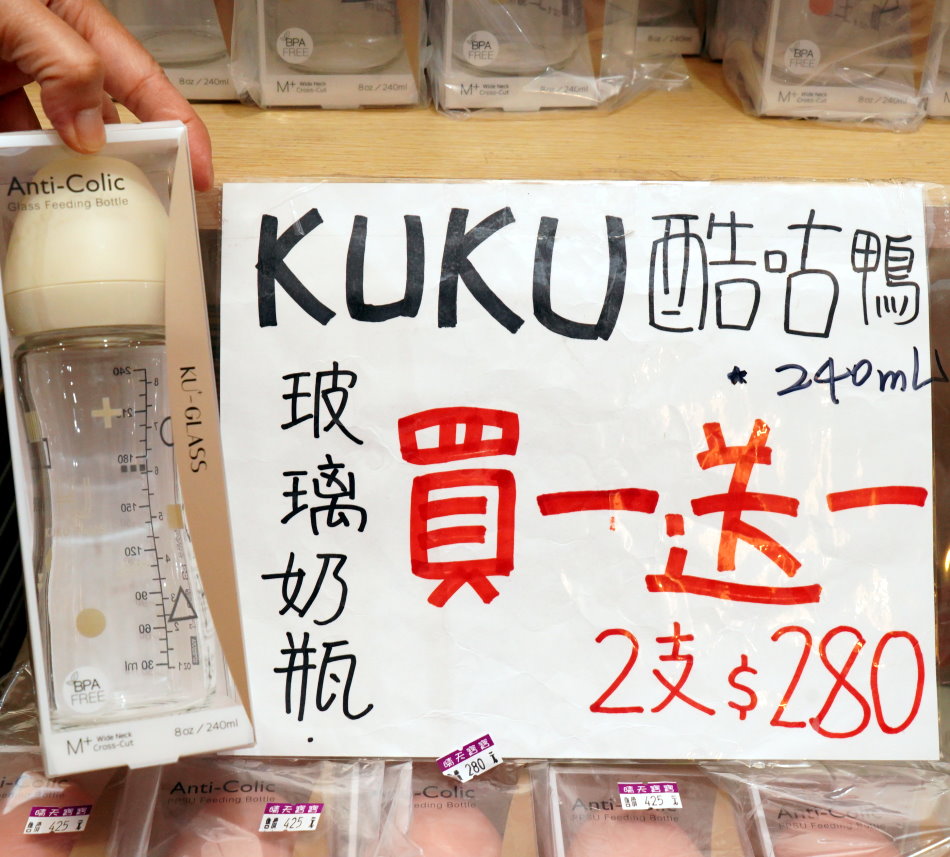 BPA
FREE
M+ Wide Neck
Cross-Cut
8oz/240ml
8oz/240ml
BPA
FREE
M+ Wide Neck
Cross-Cut
8oz/240ml
BPA
FREE
M+ Wide Neck
Cross-Cut
8oz/240ml
Anti-Colic
Glass Feeding Bottle
KU'-GLASS
240
8
21
7
180
6
150
5
120
4
90
3
60
2
30 ml
oz.1
BPA
FREE
M+ Wide Neck
Cross-Cut
8oz/240ml
KUKU酷咕鴨
*240mL
玻璃奶瓶
買一送一
2支$280
晴天寶寶
280元
Anti-Colic
PPSU Feeding Bottle
Anti-Colic
PPSU Feeding Bottle
晴天寶寶
售價 425元
晴天寶寶
售價 425元
晴天寶寶
售價 425元